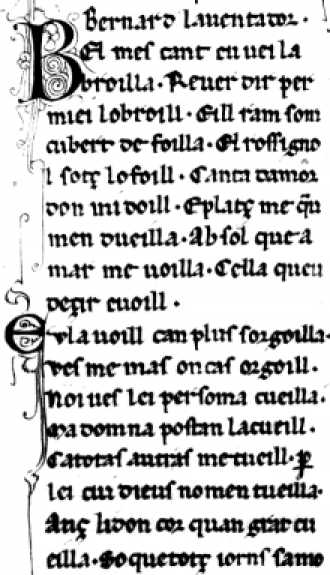 Bernard lauentador.
Bel mes cant eu uei la
broilla. Reuer dir per
miei lo broill. Eill ram som
cubert de foilla. El rossigno
l sotç lo foill. Canta damor
don mi doill. E platç me qu
men dueilla. Ab sol que a
mar me uoilla. Cella queu
deçir e uoill.
Eu la uoill can plus sorgoilla
ues me mas oncas orgoill.
Noi ues lei per so ma cueilla.
Ma domna postan lacueill.
Ca totas autras me tueill. p
lei cui dieus no men tueilla.
Anç li don cor quan grat cu
eilla. So que totç iorns samo